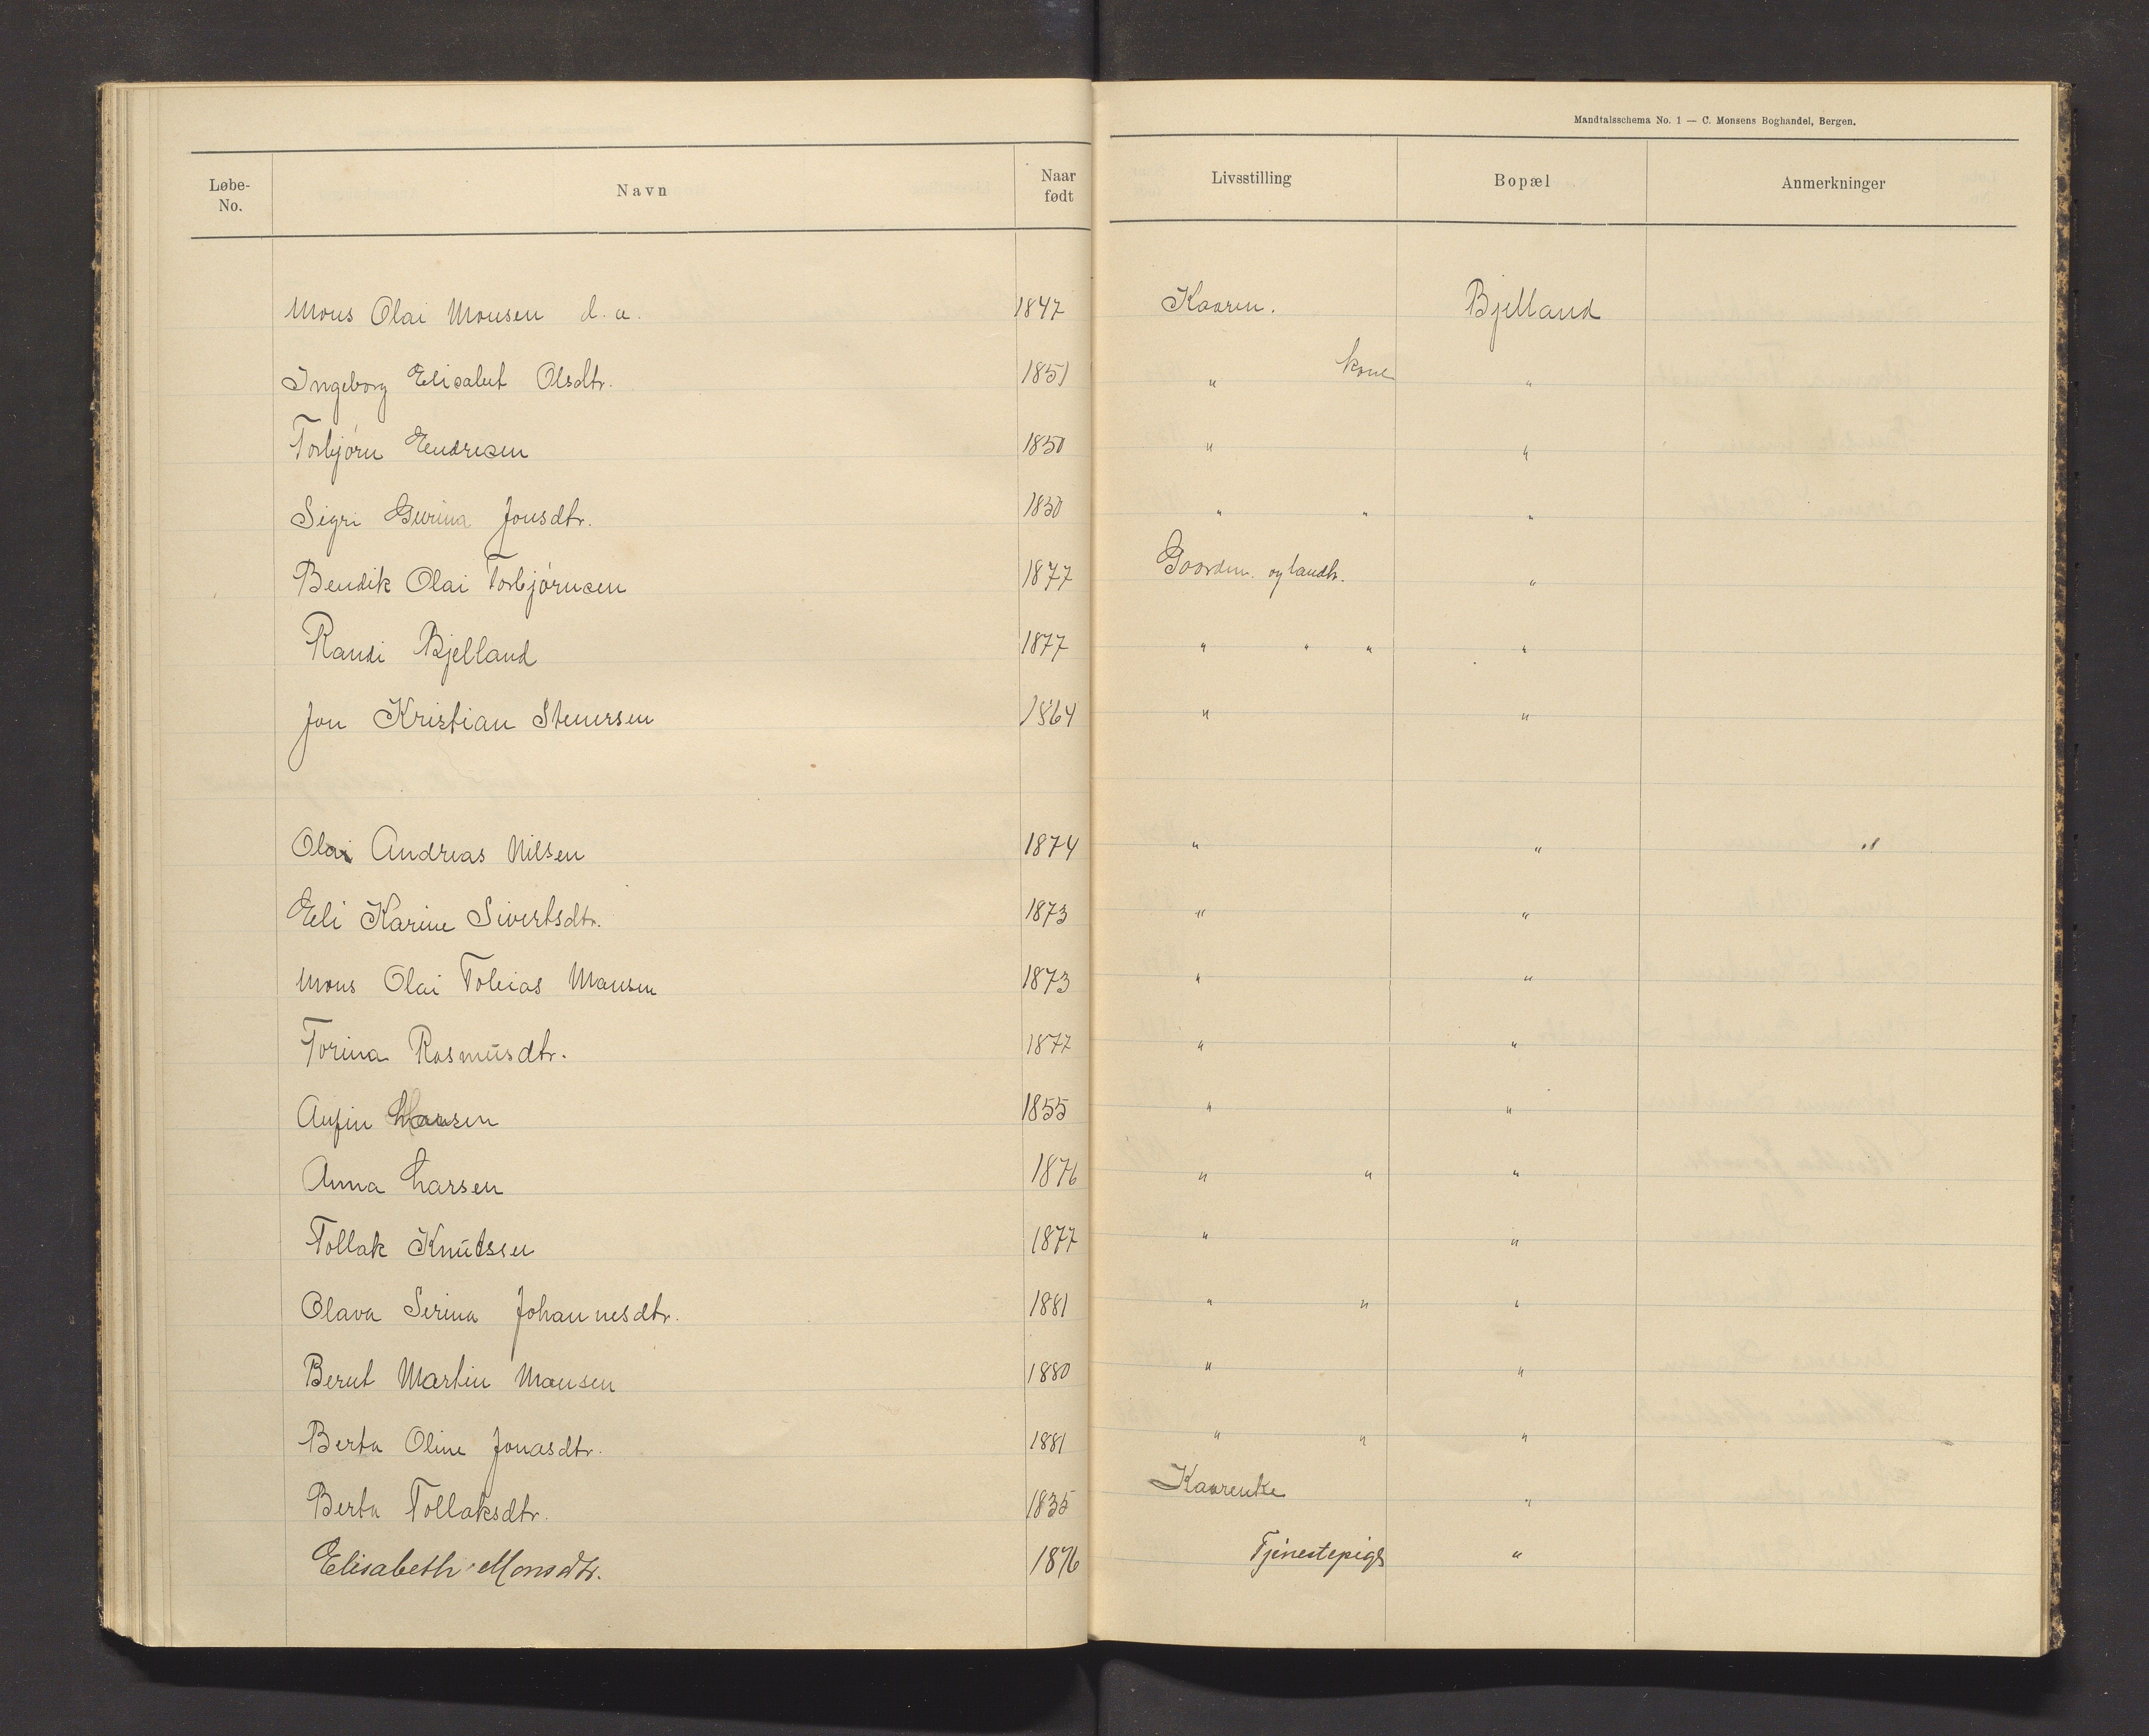 Mandtalsschema No. 1 — C. Monsens Boghandel, Bergen.
Løbe-No. Navn Naar født Livsstilling Bopæl Anmerkninger
Mons Olai Monsen d. æ. 1847 Kaarm. Bjelland
Ingeborg Elisabet Olsdtr. 1851 " kone "
Torbjörn Endresen 1850 " "
Sigri Gurina Jonsdtr. 1850 " " "
Bendik Olai Torbjörnsen 1877 Gaardm. og landh. "
Randi Bjelland 1877 " " " "
Jon Kristian Stenersen 1864 " "
Olai Andreas Nilsen 1874 " " "
Eli Karine Sivertsdtr. 1873 " "
Mons Olai Tobias Monsen 1873 " "
Torina Rasmusdtr. 1877 " "
Anfin 1855 " "
Anna Larsen 1876 " " "
Tollak Knutssen 1877 " "
Olava Serina Johannesdtr. 1881 " " "
Bernt Martin Monsen 1880 " "
Berta Oline Jonasdtr. 1881 " " "
Berta Tollaksdtr. 1835 Kaarenke "
Elisabeth Monsdtr. 1876 Tjenestepige "